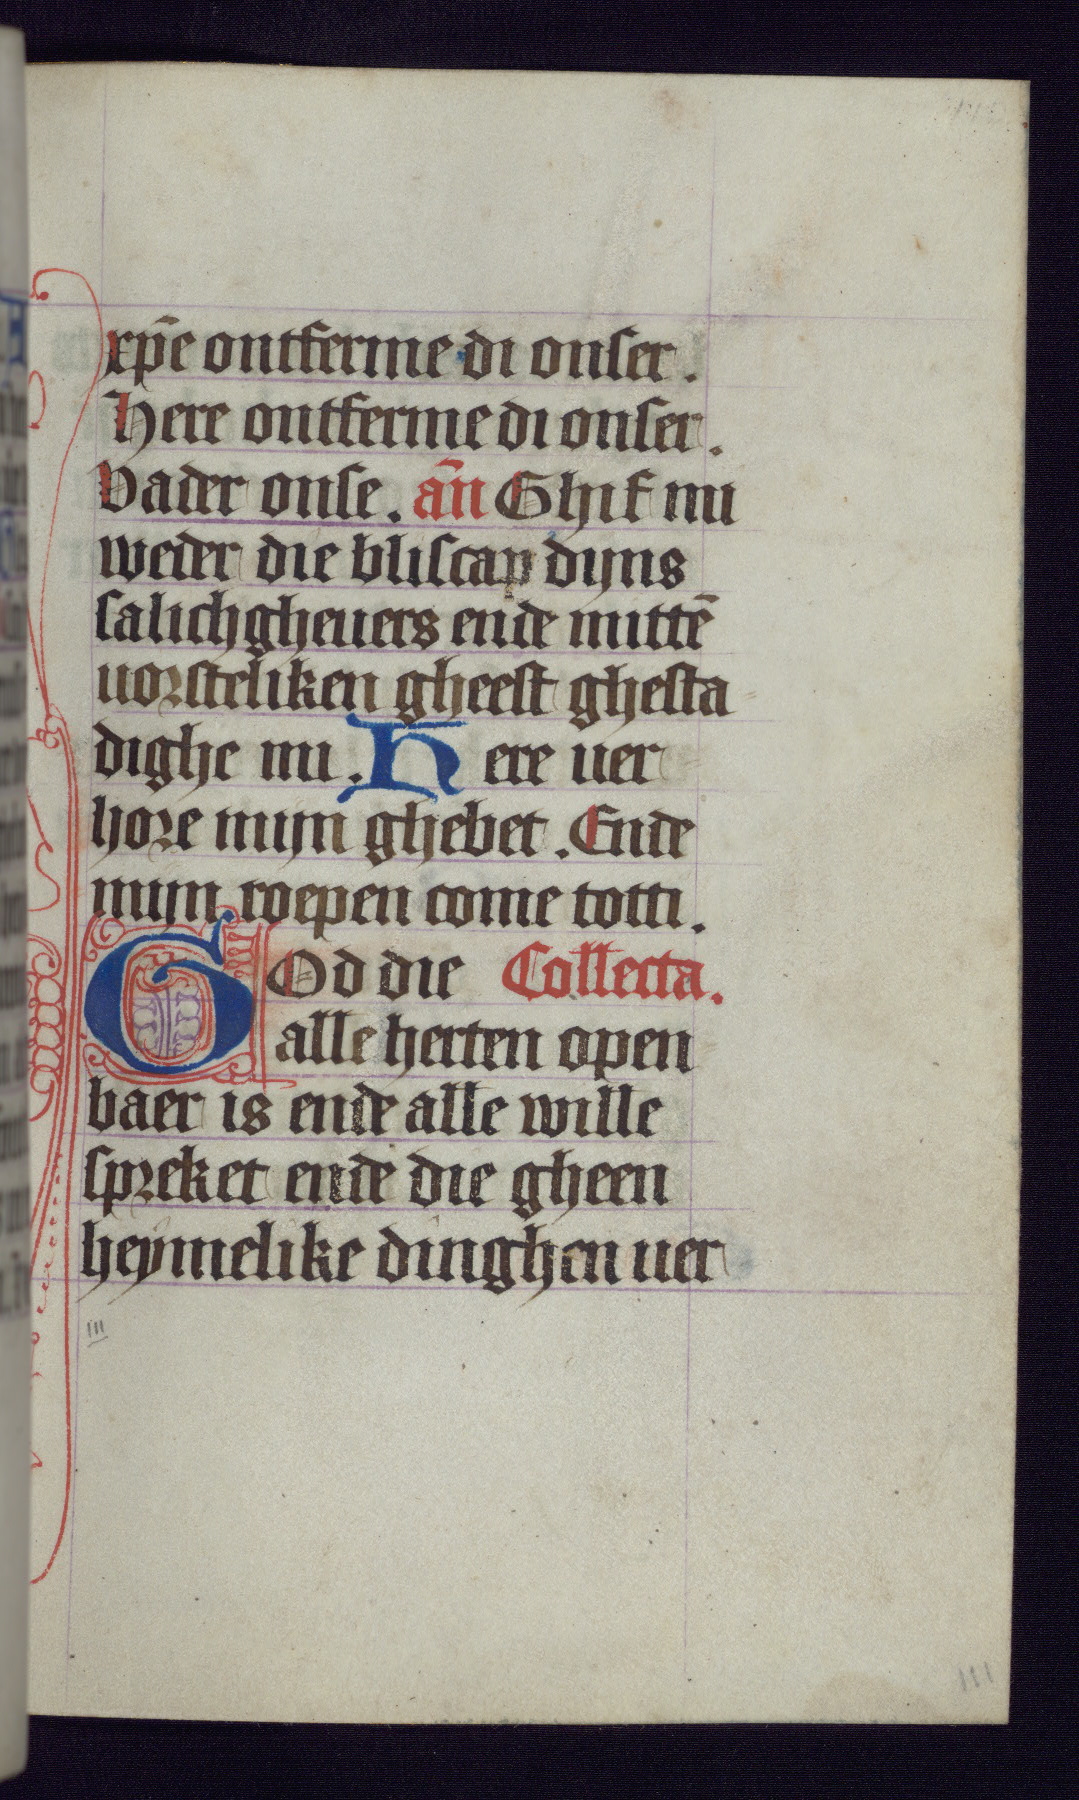 xp̄e ontferme di onser.
Here ontferme di onser.
Vader onse. an̄ Ghif mi
weder die bliscap dyns
salichgheuers ende mittē
uorsteliken gheest ghesta
dighe mi. Here uer
hore mijn ghebet. Ende
mijn roepen come totti.
GOd die Collecta.
alle herten open
baer is ende alle wille
spreket ende die gheen
heymelike dinghen uer
III
111